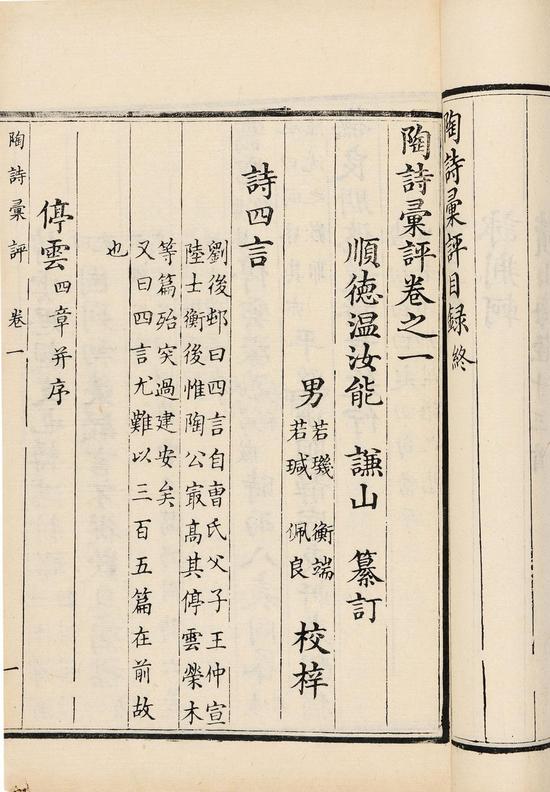 陶詩彙評目録終
陶詩彙評卷之一
順徳温汝能 謙山 纂訂
男 若璣 衡端 若珹 佩良 校梓
詩四言
劉後邨曰四言自曹氏父子王仲宣
陸士衡後惟陶公㝡高其停雲榮木
等篇殆突過建安矣
又曰四言尤難以三百五篇在前故
也
停雲四章并序
陶詩彙評 卷一 一